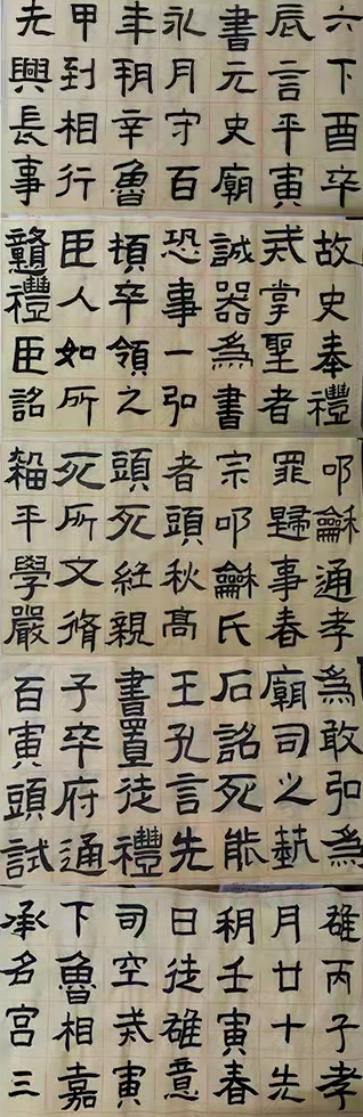 六下酉卒
辰言平寅
書元史廟
永月守百
年朔辛魯
甲到相行
興長事
故史奉禮
式掌聖者
誠器為書
恐事一弘
頓卒領之
臣人如所
戇禮臣詔
叩龢通孝
罪歸事春
宗叩龢氏
者頭秋高
頭死經親
死所文脩
平學嚴
為敢弘為
廟司之藝
石詔死能
王孔言先
書置徒禮
子卒府通
百寅頭試
雄丙子孝
月廿十先
朔壬寅春
日徒雄意
司空式寅
下魯相嘉
承名宮三